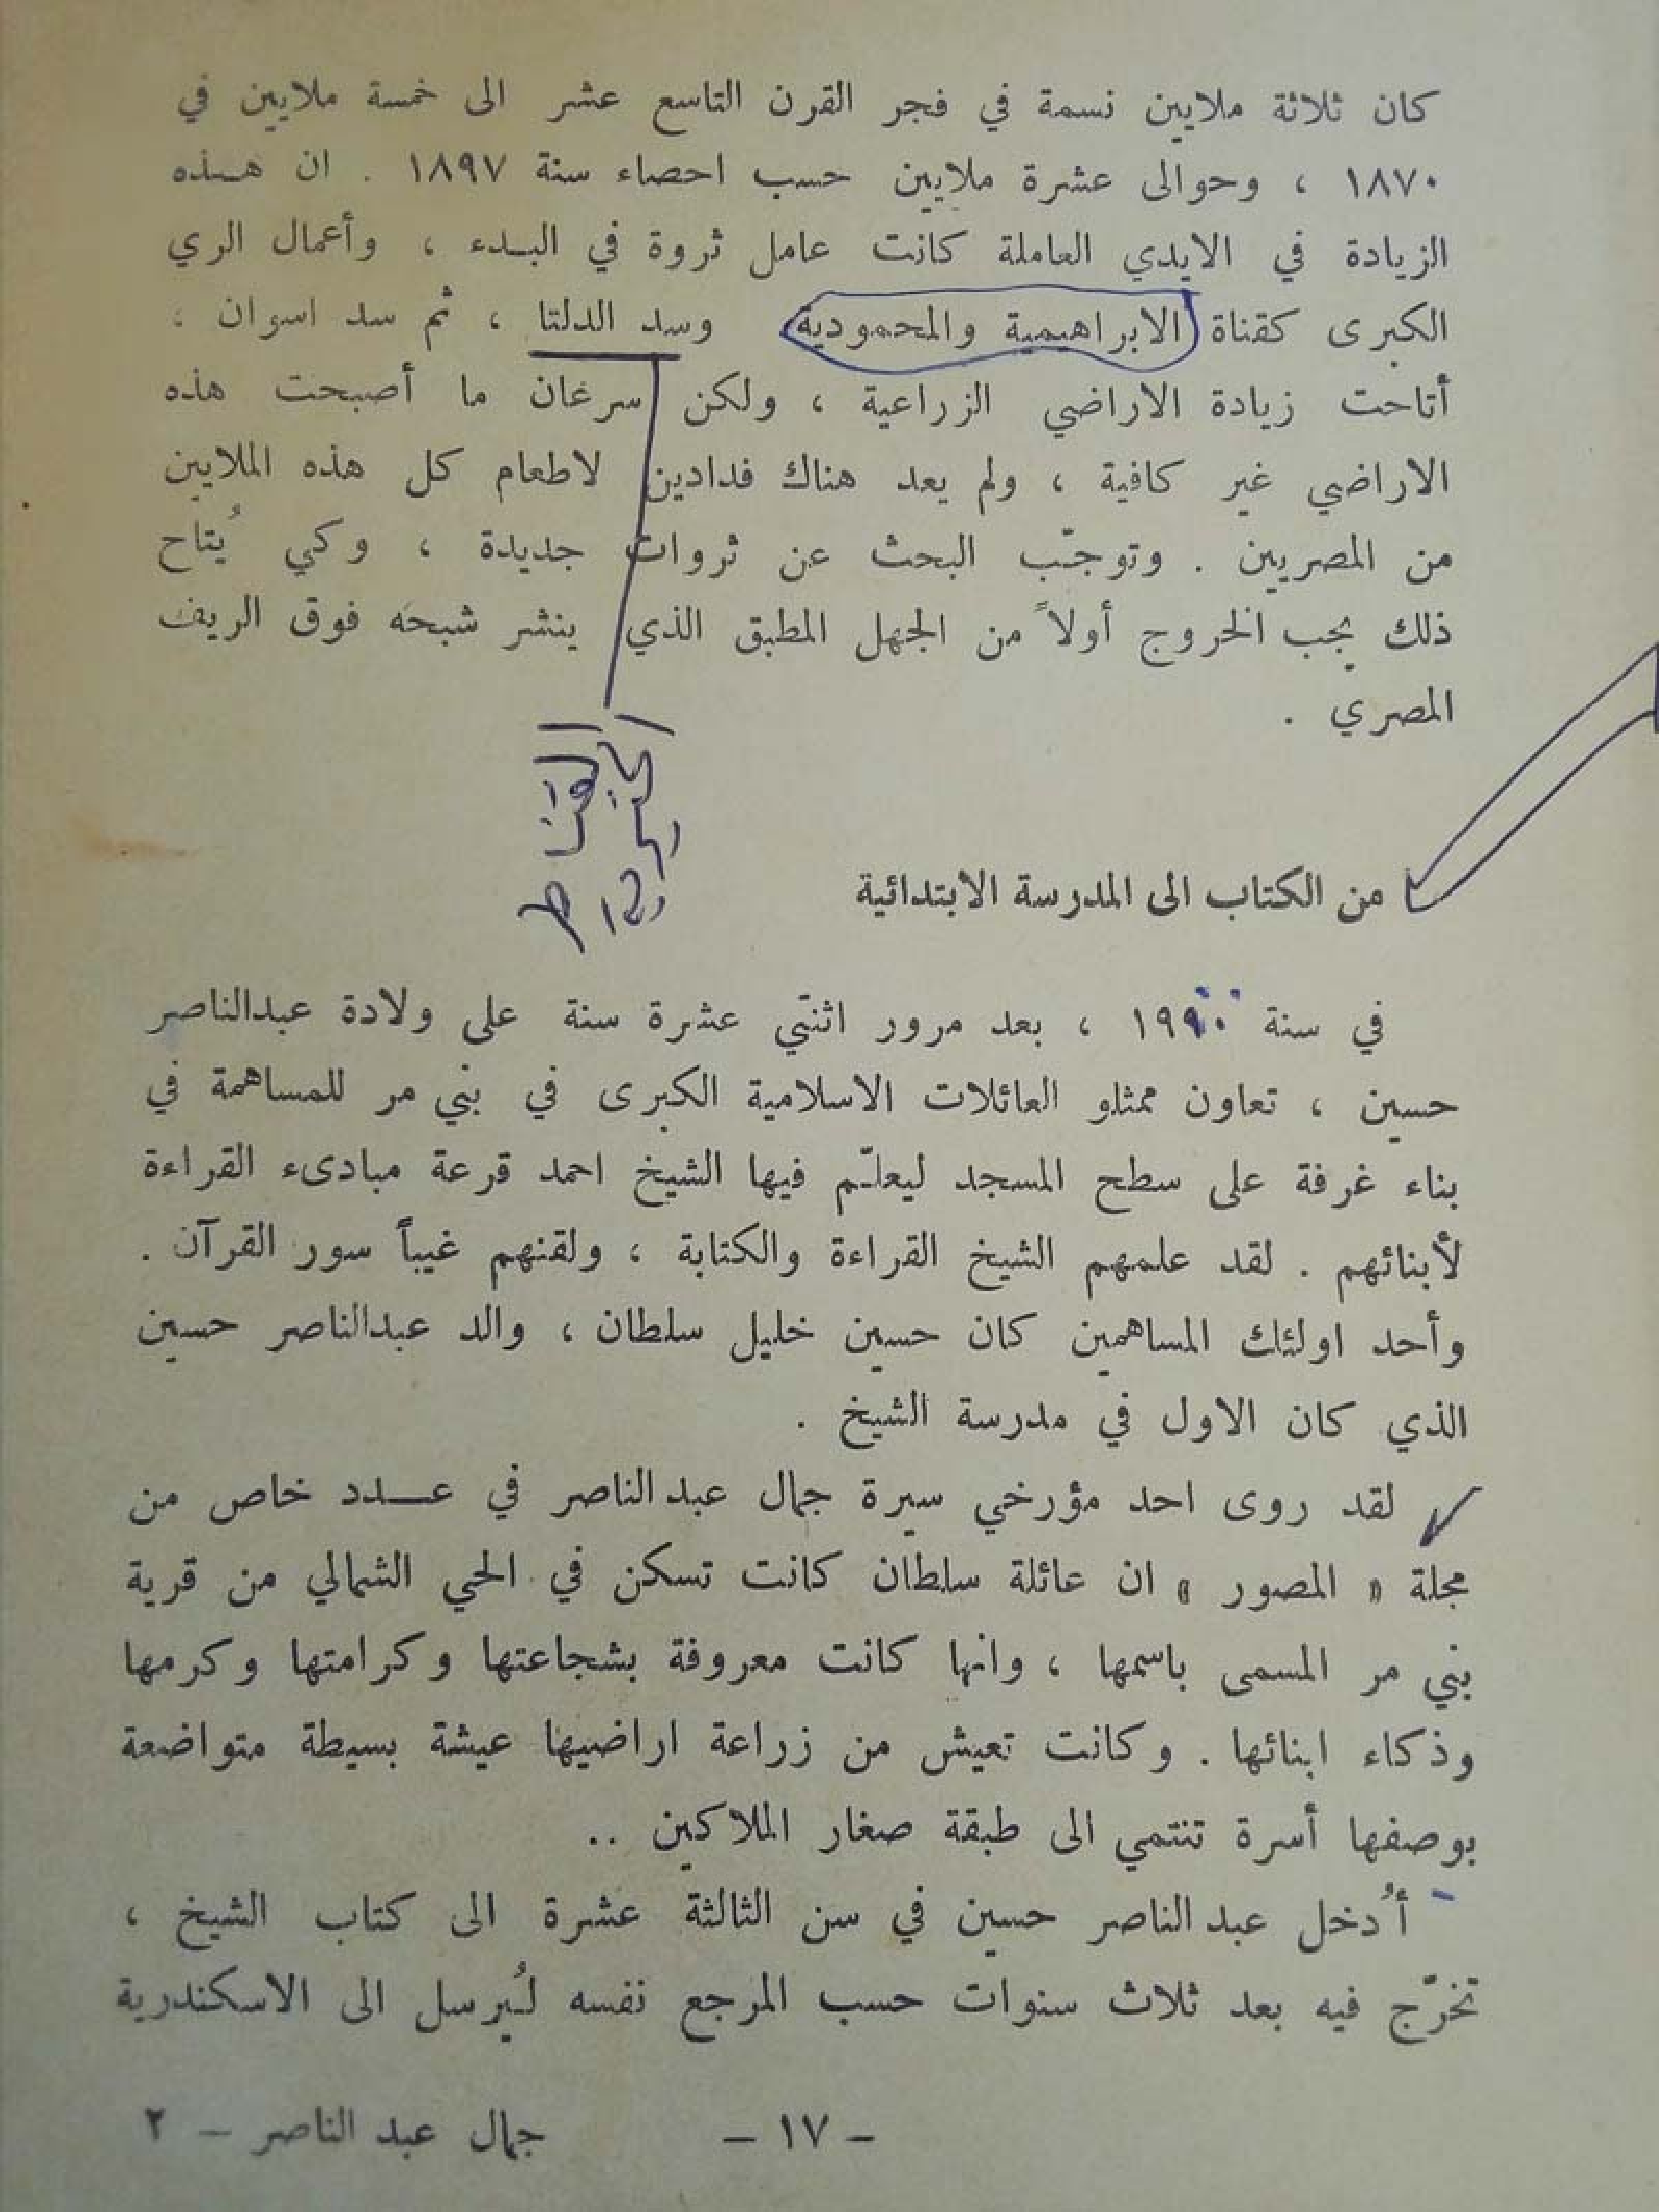 كان ثلاثة ملايين نسمة في فجر القرن التاسع عشر الى خمسة ملايين في
١٨٧٠ ، وحوالى عشرة ملايين حسب احصاء سنة ١٨٩٧ . ان هـذه
الزيادة في الايدي العاملة كانت عامل ثروة في البـدء ، وأعمال الري
الكبرى كقناة الابراهيمية والمحمودية وسد الدلتا ، ثم سد اسوان ،
أتاحت زيادة الاراضي الزراعية ، ولكن سرعان ما أصبحت هذه
الاراضي غير كافية ، ولم يعد هناك فدادين لاطعام كل هذه الملايين
من المصريين . وتوجّب البحث عن ثروات جديدة ، وكي يُتاح
ذلك يجب الخروج أولاً من الجهل المطبق الذي ينشر شبحه فوق الريف
المصري .
القناطر
الخيرية
من الكتاب الى المدرسة الابتدائية
في سنة ١٩٩٠ ، بعد مرور اثنتي عشرة سنة على ولادة عبدالناصر
حسين ، تعاون ممثلو العائلات الاسلامية الكبرى في بني مر للمساهمة في
بناء غرفة على سطح المسجد ليعلـّم فيها الشيخ احمد قرعة مبادىء القراءة
لأبنائهم . لقد علمهم الشيخ القراءة والكتابة ، ولقنهم غيباً سور القرآن .
وأحد اولئك المساهمين كان حسين خليل سلطان ، والد عبدالناصر حسين
الذي كان الاول في مدرسة الشيخ .
لقد روى احد مؤرخي سيرة جمال عبد الناصر في عـــدد خاص من
مجلة « المصور » ان عائلة سلطان كانت تسكن في الحي الشمالي من قرية
بني مر المسمى باسمها ، وانها كانت معروفة بشجاعتها وكرامتها وكرمها
وذكاء ابنائها . وكانت تعيش من زراعة اراضيها عيشة بسيطة متواضعة
بوصفها أسرة تنتمي الى طبقة صغار الملاكين ..
أُدخل عبد الناصر حسين في سن الثالثة عشرة الى كتاب الشيخ ،
تخرّج فيه بعد ثلاث سنوات حسب المرجع نفسه ليُرسل الى الاسكندرية
– ١٧ – جمال عبد الناصر – ٢